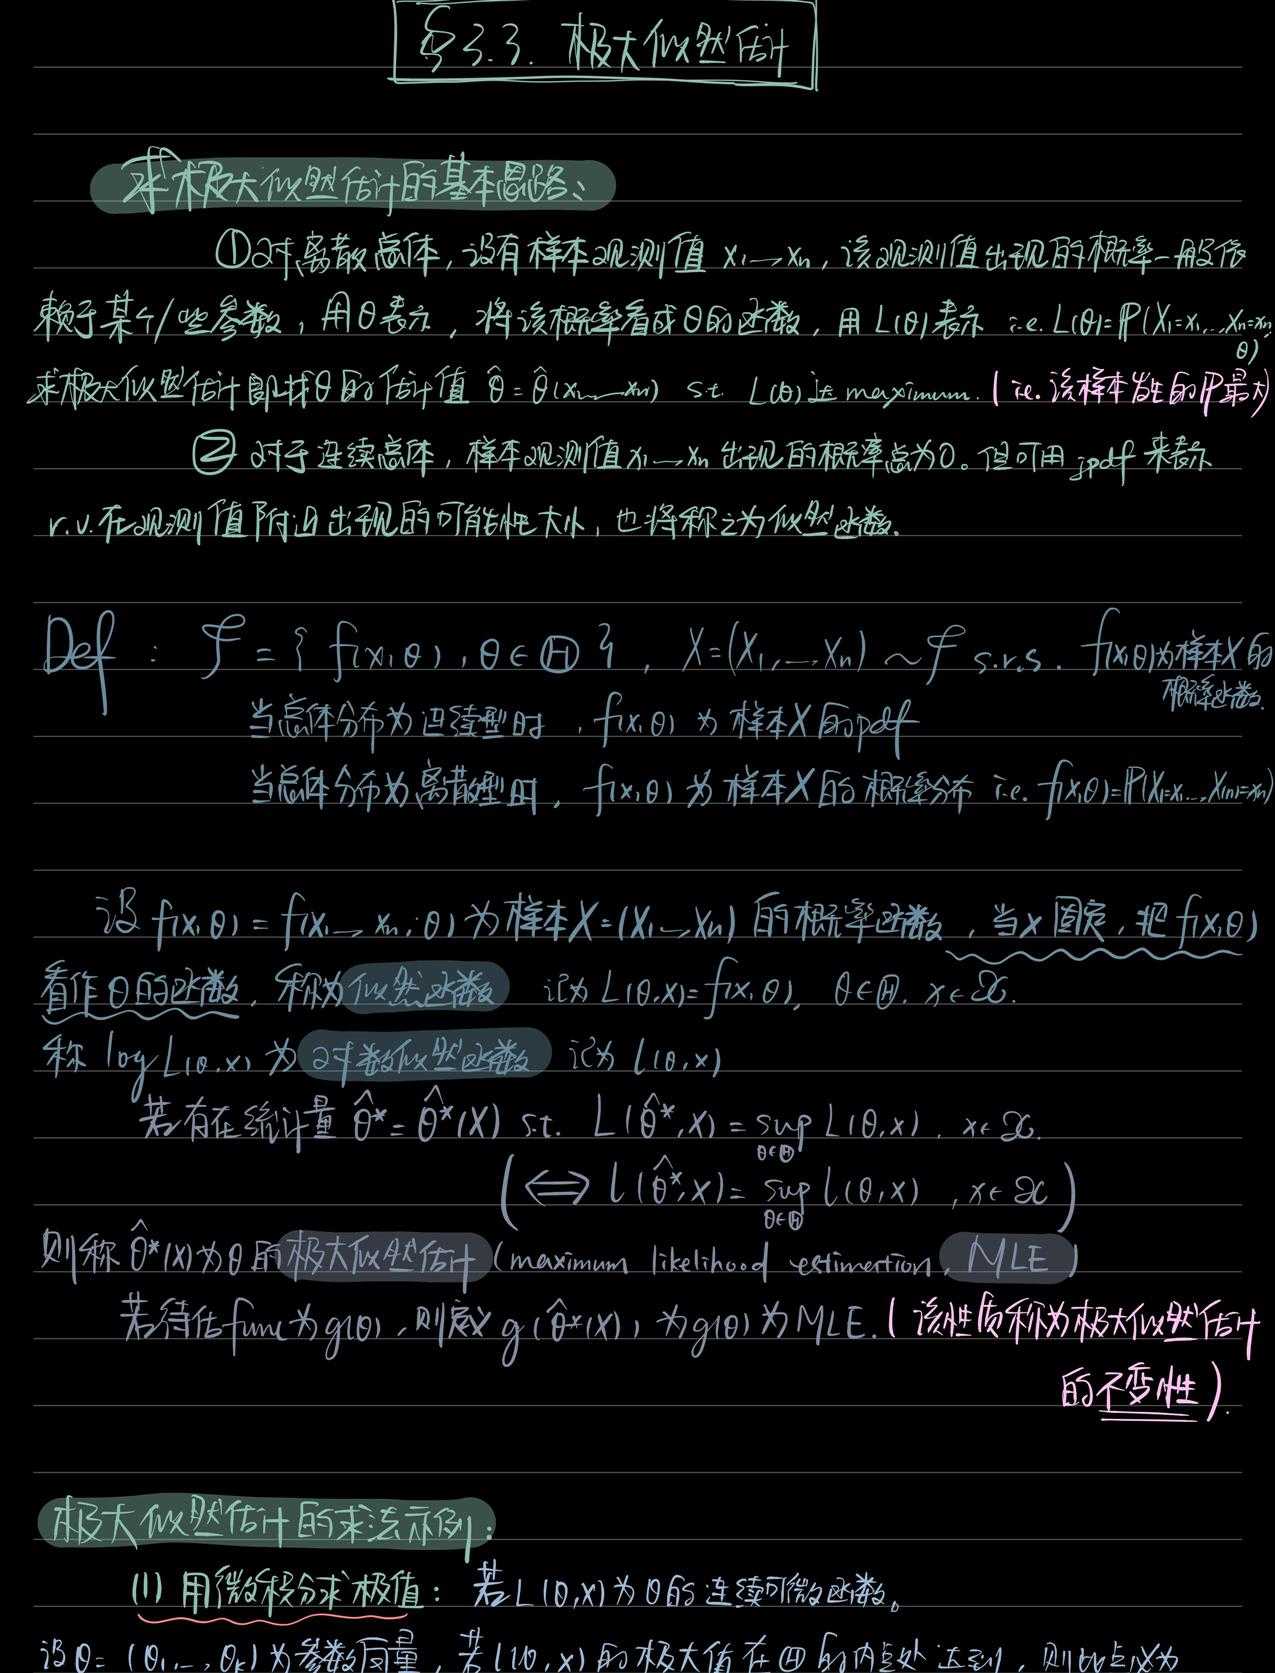 §3.3. 极大似然估计
求极大似然估计的基本思路:
①对离散总体,设有样本观测值 x₁…xₙ,该观测值出现的概率一般依
赖于某个/些参数,用θ表示,将该概率看成θ的函数,用L(θ)表示 i.e. L(θ)=ℙ(X₁=x₁,…,Xₙ=xₙ;
θ)
求极大似然估计即找θ的估计值 θ̂=θ̂(x₁,…,xₙ) s.t. L(θ)达maximum. (i.e.该样本发生的ℙ最大)
② 对于连续总体,样本观测值x₁…xₙ出现的概率总为0。但可用jpdf来表示
r.v.在观测值附近出现的可能性大小,也将称之为似然函数.
Def : ℱ={f(x,θ),θ∈Θ}, X=(X₁,…,Xₙ)~ℱ s.r.s. f(x,θ)为样本X的
概率函数.
当总体分布为连续型时,f(x,θ)为样本X的pdf
当总体分布为离散型时,f(x,θ)为样本X的概率分布 i.e. f(x,θ)=ℙ(X₁=x₁,…,Xₙ=xₙ)
设f(x,θ)=f(x₁…xₙ;θ)为样本X=(X₁…Xₙ)的概率函数,当x固定,把f(x,θ)
看作θ的函数,称为似然函数 记为L(θ,x)=f(x,θ), θ∈Θ, x∈𝒳.
称logL(θ,x)为对数似然函数 记为l(θ,x)
若有在统计量θ̂*=θ̂*(X) s.t. L(θ̂*,x)=sup L(θ,x), x∈𝒳.
θ∈Θ
(⟺ l(θ̂*,x)=sup l(θ,x), x∈𝒳)
θ∈Θ
则称θ̂*(X)为θ的极大似然估计(maximum likelihood estimation, MLE)
若待估func为g(θ),则定义g(θ̂*(X))为g(θ)为MLE.(该性质称为极大似然估计
的不变性).
极大似然估计的求法示例:
(1) 用微积分求极值: 若L(θ,x)为θ的连续可微函数。
设θ=(θ₁,…,θₖ)为参数向量,若l(θ,x)的极大值在Θ的内点处达到,则此点必为